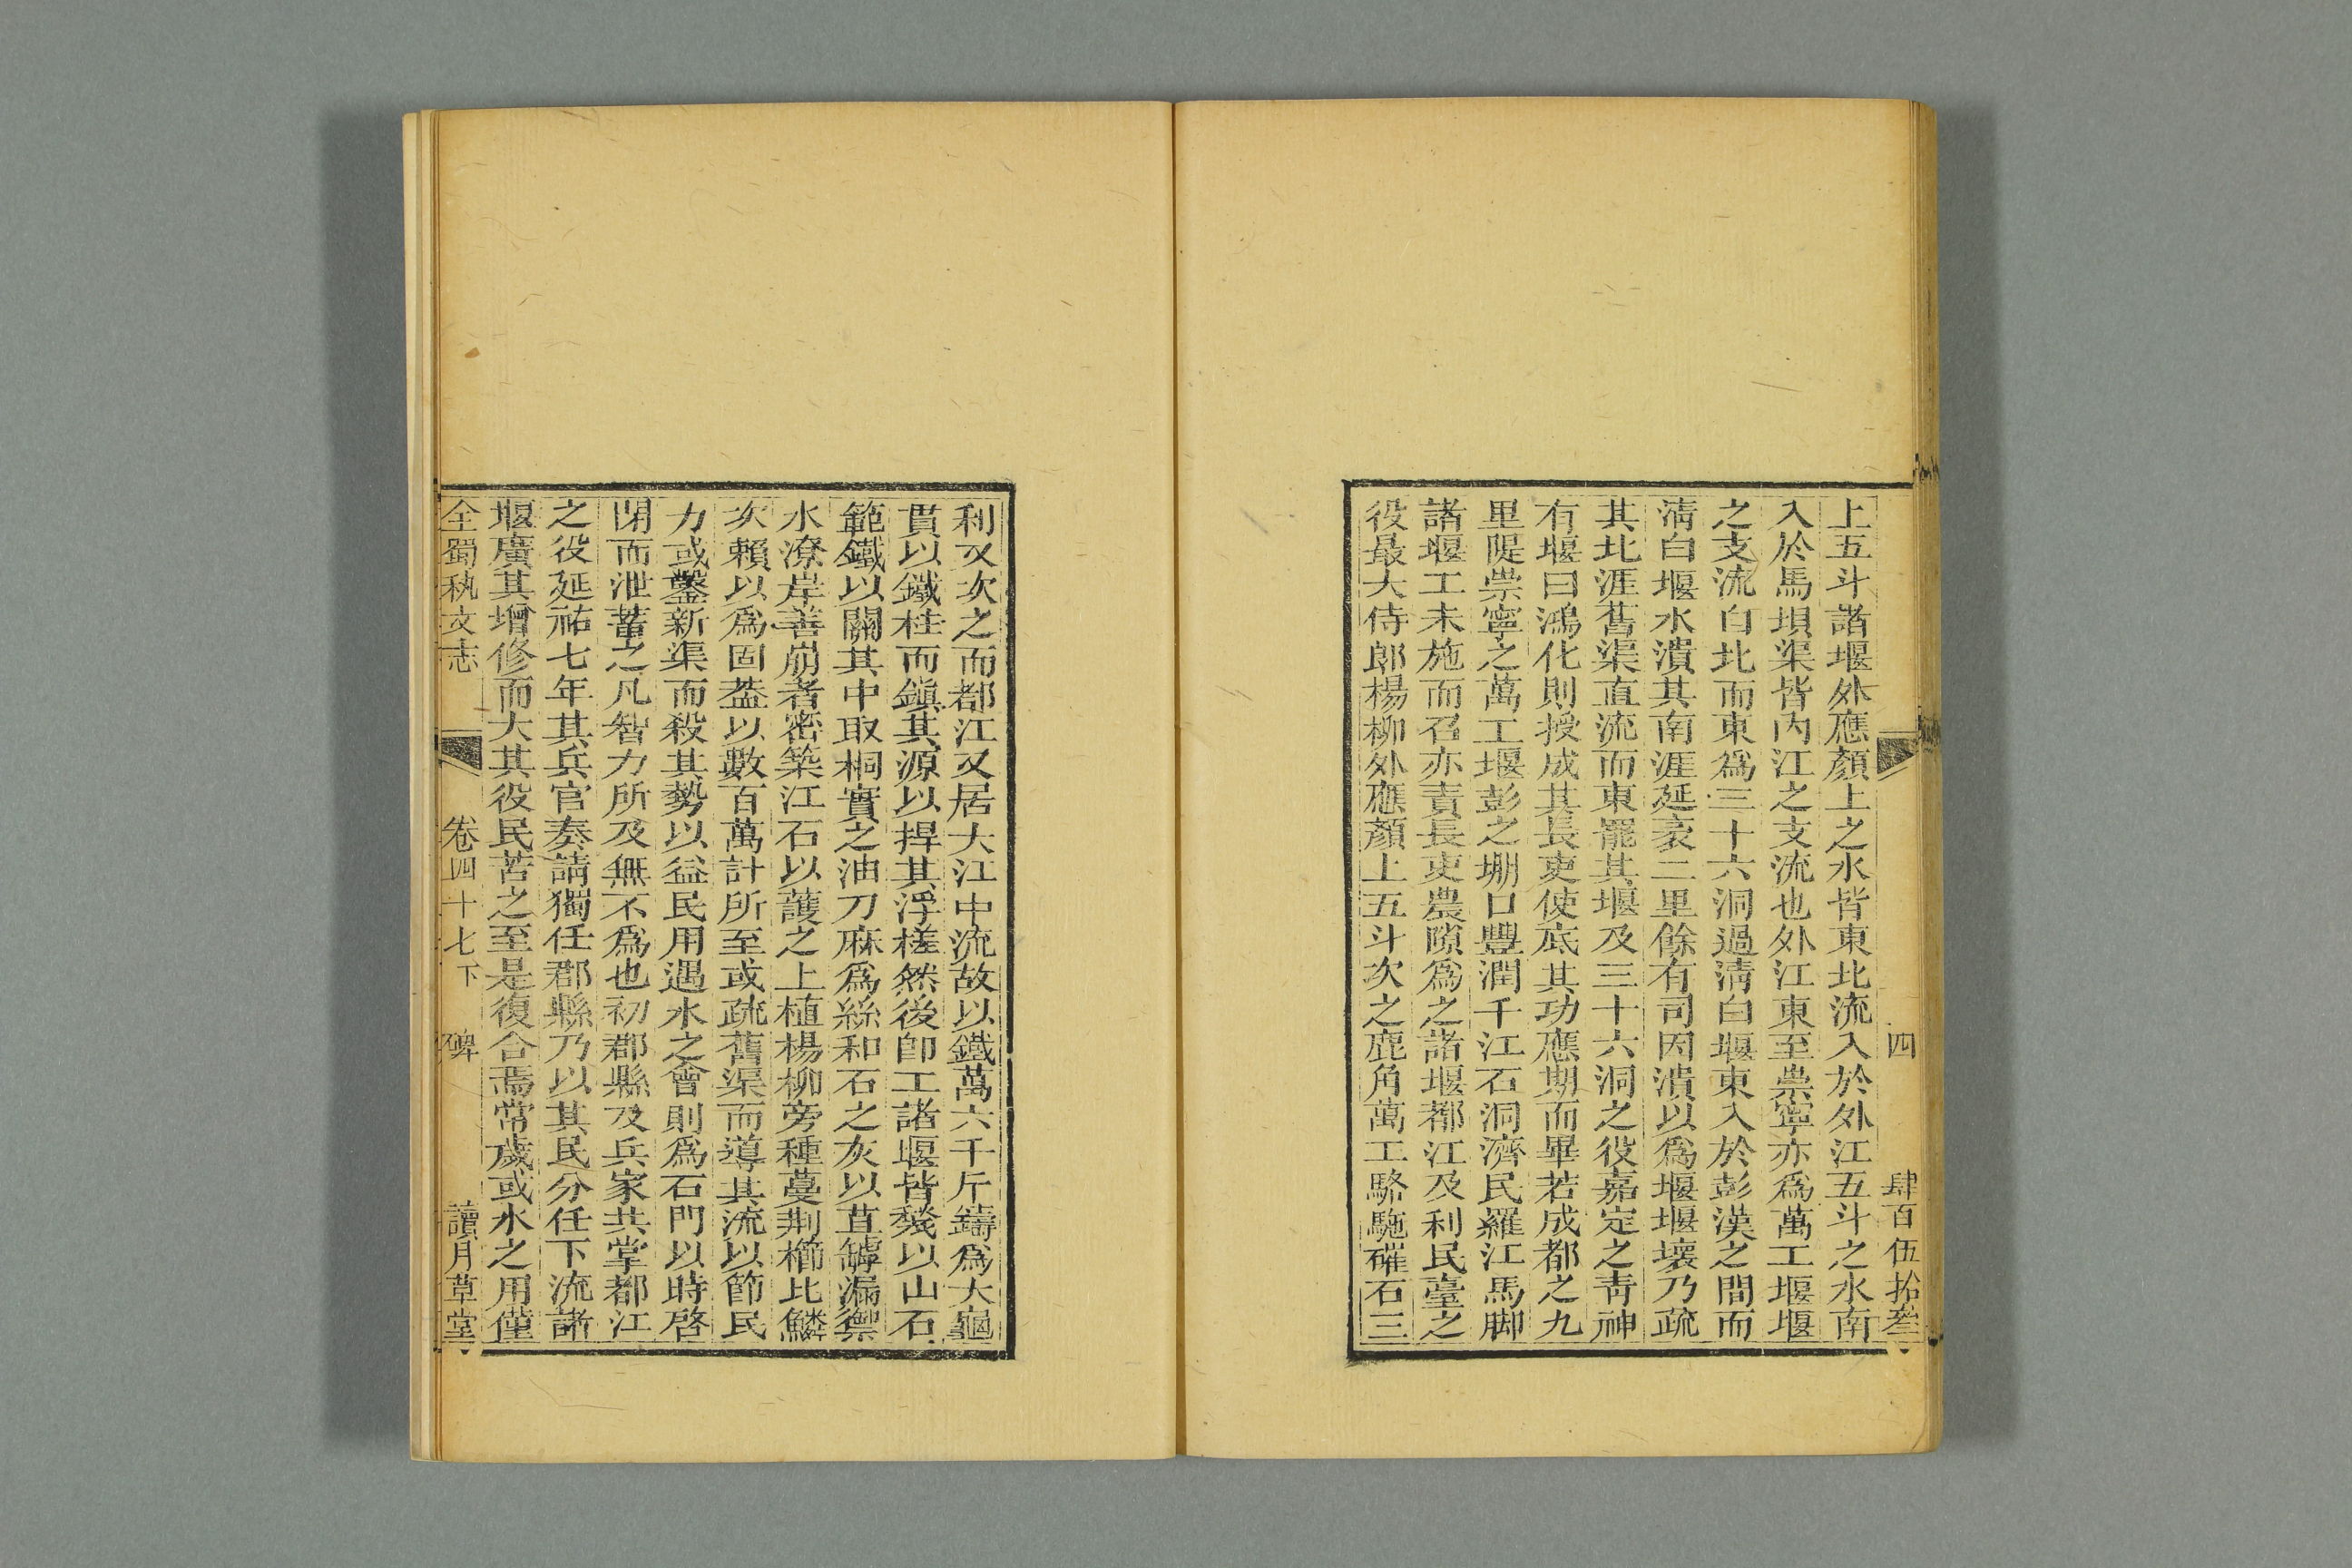 四 肆百伍拾叁
上五斗諸堰外應顏上之水皆東北流入於外江五斗之水南
入於馬壩渠皆內江之支流也外江東至崇寧亦爲萬工堰堰
之支流自北而東爲三十六洞過淸白堰東入於彭漢之間而
淸白堰水潰其南涯延袤二里餘有司因潰以爲堰堰壞乃疏
其北涯舊渠直流而東罷其堰及三十六洞之役嘉定之靑神
有堰曰鴻化則授成其長吏使底其功應期而畢若成都之九
里隄崇寧之萬工堰彭之堋口豐潤千江石洞濟民羅江馬脚
諸堰工未施而召亦責長吏農隙爲之諸堰都江及利民臺之
役最大侍郎楊柳外應顏上五斗次之鹿角萬工駱駞磪石三
利又次之而都江又居大江中流故以鐵萬六千斤鑄爲大龜
貫以鐵柱而鎭其源以捍其浮槎然後卽工諸堰皆甃以山石
範鐵以關其中取桐實之油刀麻爲絲和石之灰以苴罅漏禦
水潦岸善崩者密築江石以護之上植楊柳旁種蔓荆櫛比鱗
次賴以爲固葢以數百萬計所至或疏舊渠而導其流以節民
力或鑿新渠而殺其勢以益民用遇水之會則爲石門以時啓
閉而泄蓄之凡智力所及無不爲也初郡縣及兵家共掌都江
之役延祐七年其兵官奏請獨任郡縣乃以其民分任下流諸
堰廣其增修而大其役民苦之至是復合焉常歲或水之用僅
全蜀秇文志 卷四十七下 碑 讀月草堂